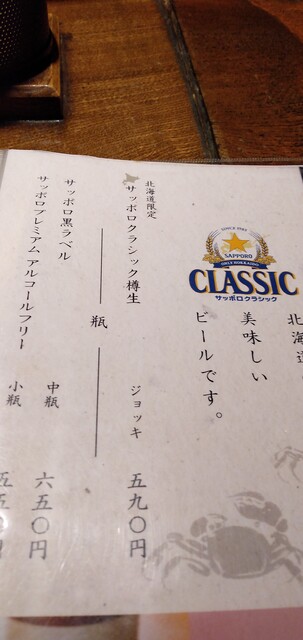 北海道
美味しい
ビールです。
SINCE 1985
SAPPORO
CLASSIC
サッポロクラシック
北海道限定
サッポロクラシック樽生 ジョッキ 五九〇円
瓶
サッポロ黒ラベル 中瓶 六五〇円
サッポロプレミアムアルコールフリー 小瓶